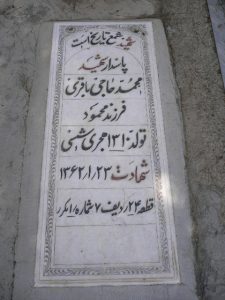 شهید شمع تاریخ است
پاسدار شهید
محمد حاجی باقری
فرزند محمود
تولد ۱۳۱۰ هجری شمسی
شهادت ۱۳۶۲/۱/۲۳
قطعه ۲۴ ردیف ۷ شماره ۱ مکرر